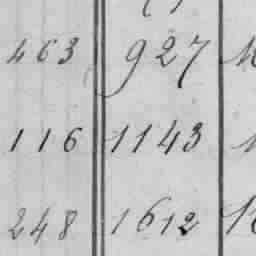 463 927
116 1143
248 1612